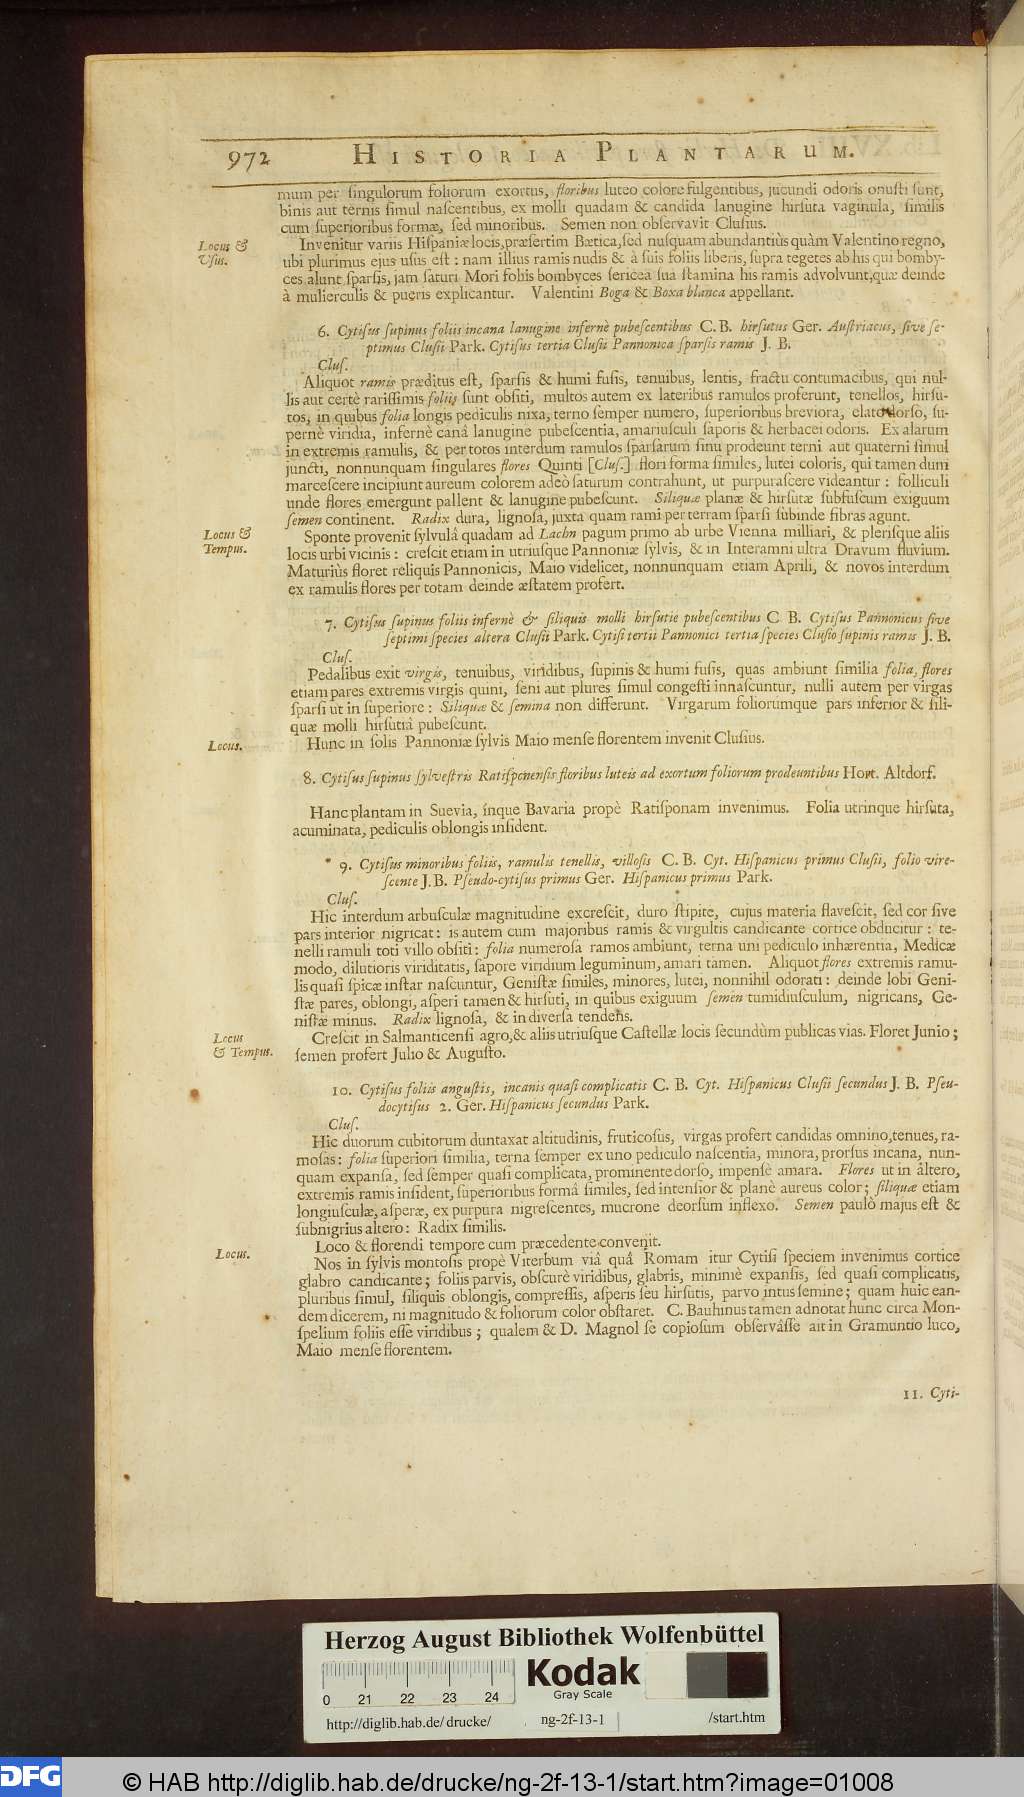 972 HISTORIA PLANTARUM.
mum per ſingulorum foliorum exortus, floribus luteo colore fulgentibus, jucundi odoris onuſti ſunt,
binis aut ternis ſimul naſcentibus, ex molli quadam & candida lanugine hirſuta vaginula, ſimilis
cum ſuperioribus formæ, ſed minoribus. Semen non obſervavit Cluſius.
Locus &
Uſus.
Invenitur variis Hiſpaniæ locis, præſertim Bætica, ſed nuſquam abundantiùs quàm Valentino regno,
ubi plurimus ejus uſus eſt : nam illius ramis nudis & à ſuis foliis liberis, ſupra tegetes ab his qui bomby-
ces alunt ſparſis, jam ſaturi Mori foliis bombyces ſericea ſua ſtamina his ramis advolvunt, quæ deinde
à mulierculis & pueris explicantur. Valentini Boga & Boxa blanca appellant.
6. Cytiſus ſupinus foliis incana lanugine infernè pubeſcentibus C. B. hirſutus Ger. Auſtriacus, ſive ſe-
ptimus Cluſii Park. Cytiſus tertia Cluſii Pannonica ſparſis ramis J. B.
Cluſ.
Aliquot ramis præditus eſt, ſparſis & humi fuſis, tenuibus, lentis, fractu contumacibus, qui nul-
lis aut certè rariſſimis foliis ſunt obſiti, multos autem ex lateribus ramulos proferunt, tenellos, hirſu-
tos, in quibus folia longis pediculis nixa, terno ſemper numero, ſuperioribus breviora, elato dorſo, ſu-
pernè viridia, infernè canâ lanugine pubeſcentia, amariuſculi ſaporis & herbacei odoris. Ex alarum
in extremis ramulis, & per totos interdum ramulos ſparſarum ſinu prodeunt terni aut quaterni ſimul
juncti, nonnunquam ſingulares flores Quinti [Cluſ.] flori forma ſimiles, lutei coloris, qui tamen dum
marceſcere incipiunt aureum colorem adeò ſaturum contrahunt, ut purpuraſcere videantur : folliculi
unde flores emergunt pallent & lanugine pubeſcunt. Siliquæ planæ & hirſutæ ſubfuſcum exiguum
ſemen continent. Radix dura, lignoſa, juxta quam rami per terram ſparſi ſubinde fibras agunt.
Locus &
Tempus.
Sponte provenit ſylvulâ quadam ad Lachn pagum primo ab urbe Vienna milliari, & pleriſque aliis
locis urbi vicinis : creſcit etiam in utriuſque Pannoniæ ſylvis, & in Interamni ultra Dravum fluvium.
Maturiùs floret reliquis Pannonicis, Maio videlicet, nonnunquam etiam Aprili, & novos interdum
ex ramulis flores per totam deinde æſtatem profert.
7. Cytiſus ſupinus foliis infernè & ſiliquis molli hirſutie pubeſcentibus C B. Cytiſus Pannonicus ſive
ſeptimi ſpecies altera Cluſii Park. Cytiſi tertii Pannonici tertia ſpecies Cluſio ſupinis ramis J. B.
Cluſ.
Pedalibus exit virgis, tenuibus, viridibus, ſupinis & humi fuſis, quas ambiunt ſimilia folia, flores
etiam pares extremis virgis quini, ſeni aut plures ſimul congeſti innaſcuntur, nulli autem per virgas
ſparſi ut in ſuperiore : Siliquæ & ſemina non differunt. Virgarum foliorumque pars inferior & ſili-
quæ molli hirſutiâ pubeſcunt.
Locus.
Hunc in ſolis Pannoniæ ſylvis Maio menſe florentem invenit Cluſius.
8. Cytiſus ſupinus ſylveſtris Ratiſponenſis floribus luteis ad exortum foliorum prodeuntibus Hort. Altdorf.
Hanc plantam in Suevia, inque Bavaria propè Ratiſponam invenimus. Folia utrinque hirſuta,
acuminata, pediculis oblongis inſident.
* 9. Cytiſus minoribus foliis, ramulis tenellis, villoſis C. B. Cyt. Hiſpanicus primus Cluſii, folio vire-
ſcente J. B. Pſeudo-cytiſus primus Ger. Hiſpanicus primus Park.
Cluſ.
Hic interdum arbuſculæ magnitudine excreſcit, duro ſtipite, cujus materia flaveſcit, ſed cor ſive
pars interior nigricat : is autem cum majoribus ramis & virgultis candicante cortice obducitur : te-
nelli ramuli toti villo obſiti : folia numeroſa ramos ambiunt, terna uni pediculo inhærentia, Medicæ
modo, dilutioris viriditatis, ſapore viridium leguminum, amari tamen. Aliquot flores extremis ramu-
lis quaſi ſpicæ inſtar naſcuntur, Geniſtæ ſimiles, minores, lutei, nonnihil odorati : deinde lobi Geni-
ſtæ pares, oblongi, aſperi tamen & hirſuti, in quibus exiguum ſemen tumidiuſculum, nigricans, Ge-
niſtæ minus. Radix lignoſa, & in diverſa tendens.
Locus
& Tempus.
Creſcit in Salmanticenſi agro, & aliis utriuſque Caſtellæ locis ſecundùm publicas vias. Floret Junio ;
ſemen profert Julio & Auguſto.
10. Cytiſus foliis anguſtis, incanis quaſi complicatis C. B. Cyt. Hiſpanicus Cluſii ſecundus J. B. Pſeu-
docytiſus 2. Ger. Hiſpanicus ſecundus Park.
Cluſ.
Hic duorum cubitorum duntaxat altitudinis, fruticoſus, virgas profert candidas omnino, tenues, ra-
moſas : folia ſuperiori ſimilia, terna ſemper ex uno pediculo naſcentia, minora, prorſus incana, nun-
quam expanſa, ſed ſemper quaſi complicata, prominente dorſo, impenſè amara. Flores ut in altero,
extremis ramis inſident, ſuperioribus formâ ſimiles, ſed intenſior & planè aureus color ; ſiliquæ etiam
longiuſculæ, aſperæ, ex purpura nigreſcentes, mucrone deorſum inflexo. Semen paulò majus eſt &
ſubnigrius altero : Radix ſimilis.
Locus.
Loco & florendi tempore cum præcedente convenit.
Nos in ſylvis montoſis propè Viterbum viâ quâ Romam itur Cytiſi ſpeciem invenimus cortice
glabro candicante ; foliis parvis, obſcurè viridibus, glabris, minimè expanſis, ſed quaſi complicatis,
pluribus ſimul, ſiliquis oblongis, compreſſis, aſperis ſeu hirſutis, parvo intus ſemine ; quam huic ean-
dem dicerem, ni magnitudo & foliorum color obſtaret. C. Bauhinus tamen adnotat hunc circa Mon-
ſpelium foliis eſſe viridibus ; qualem & D. Magnol ſe copioſum obſervâſſe ait in Gramuntio luco,
Maio menſe florentem.
11. Cyti-
Herzog August Bibliothek Wolfenbüttel
Kodak
Gray Scale
0 21 22 23 24
http://diglib.hab.de/drucke/ ng-2f-13-1 /start.htm
DFG
© HAB http://diglib.hab.de/drucke/ng-2f-13-1/start.htm?image=01008